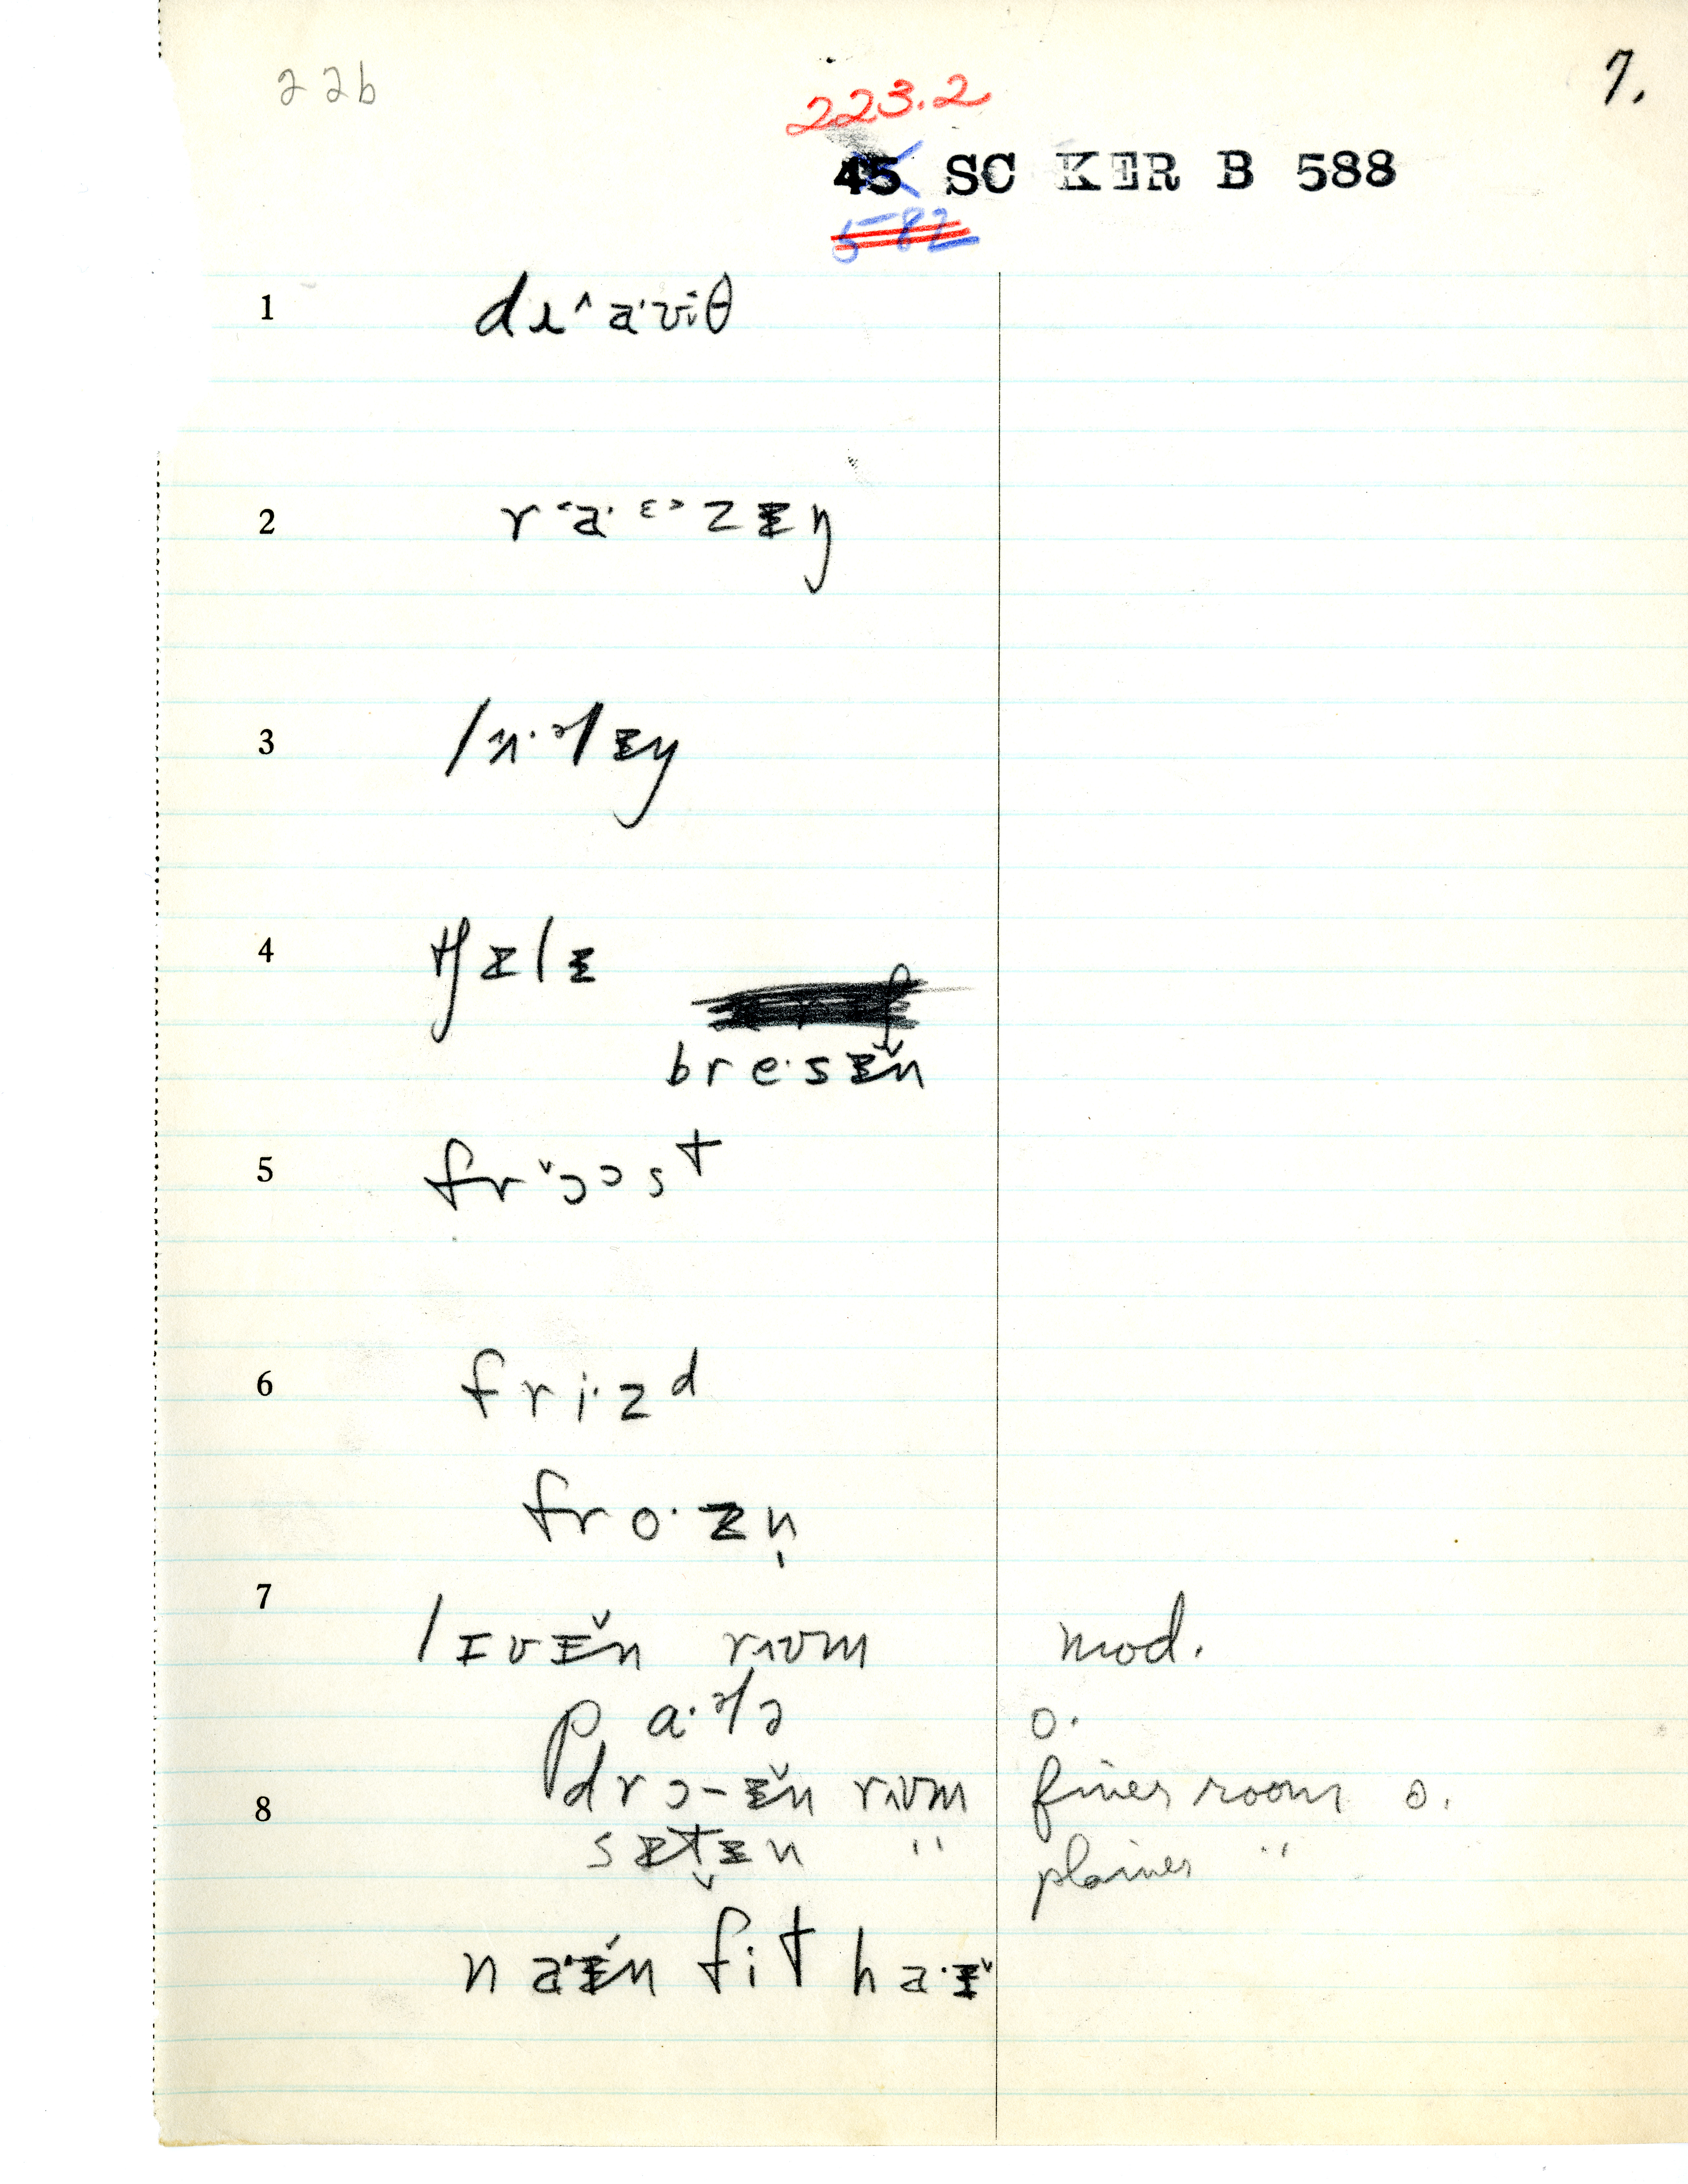 22b 223.2 7.
45 SC KER B 588
582
1 dɹ˄a·viθ
2 r˂a·ɛ˃zɪŋ
3 lɜ·ɚlɪŋ
4 tʃɪlɪ
bre·sɪ̌n
5 frɔ̌ɔst
6 fri·zᵈ
fro·zn̩
7 lɪvɪ̌n rʌʊm mod.
pa·ɚlə o.
8 drɔ-ɪ̌n rʌʊm finer room o.
sɪt̬ɪn " plainer "
na·ɪ̌n fit ha·ɪ˅